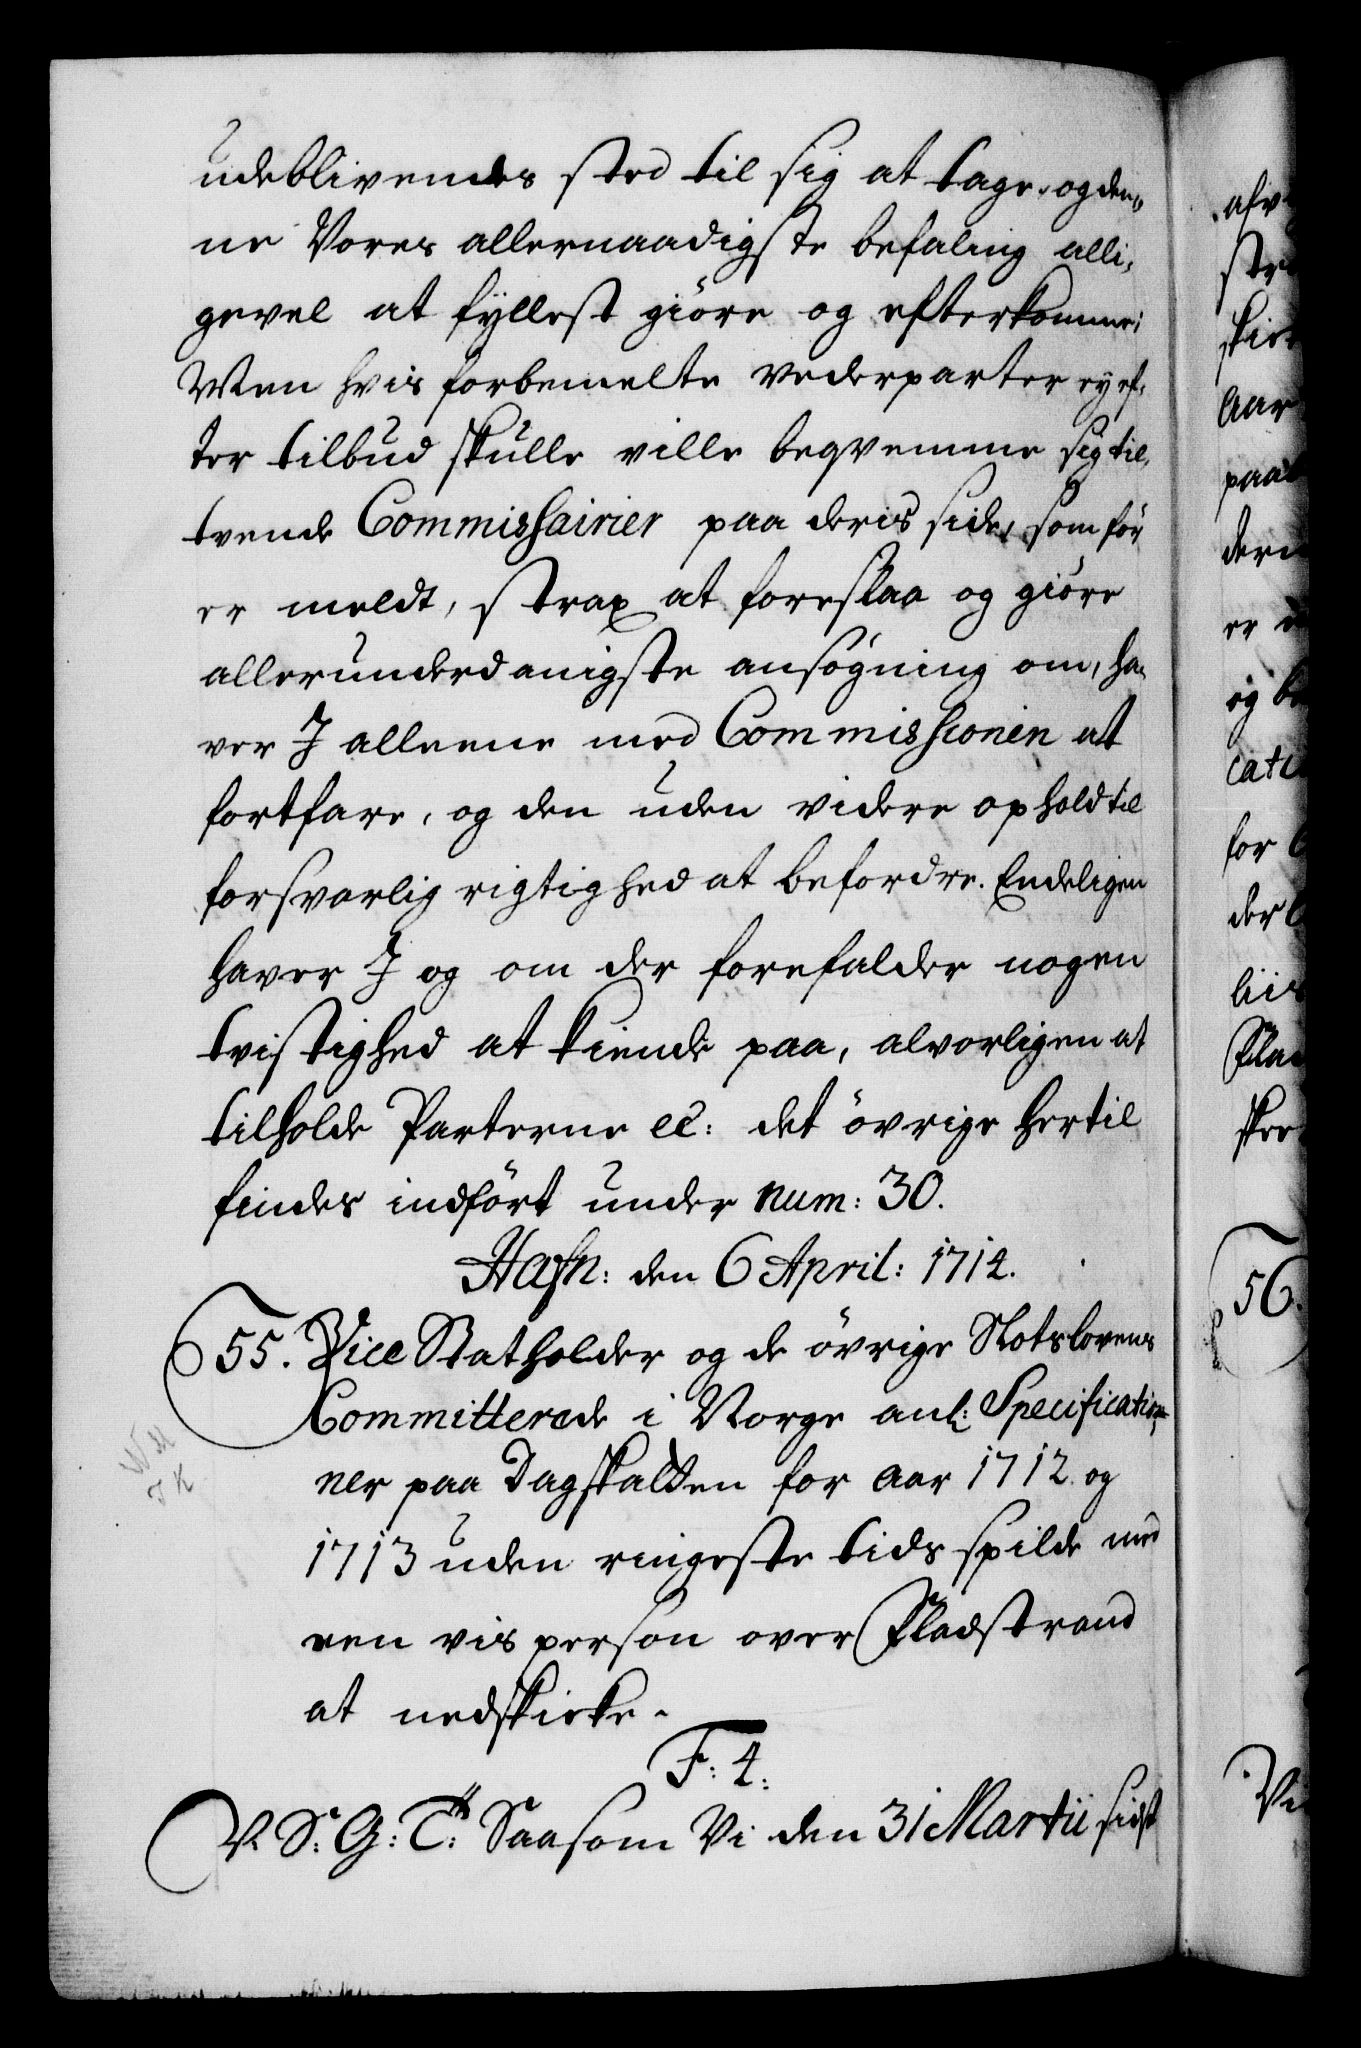 udeblivendes sted til sig at tage, og den„
ne Vores allernaadigste befaling alli„
gevel at fyllest giöre og efterkomme;
Men hvis forbemelte vederparter ey ef„
ter tilbud skulle ville beqvemme sig til,
tvende Commissairier paa deris side, som för
er meldt, strax at foreslaa og giöre
allerunderdanigste ansögning om, ha„
ver J alleene med Commissionen at
fortfare, og den uden videre ophold til
forsvarlig rigtighed at befordre. Endeligen
haver J og om der forefalder nogen
tvistighed at kiende paa, alvorligen at
tilholde Parterne ec: det övrige hertil
findes indfört under num: 30.
Hafn: den 6 April: 1714.
55. Vice Statholder og de övrige Slotslovens
Committerede i Norge anl: Specification„
ner paa Dagskatten for Aar 1712 og
1713 uden ringeste tids spilde med
een vis person over Fladstrand
at nedskicke.
F: 4:
V. S: G: T: Saasom Vi den 31 Martii sidst
56.